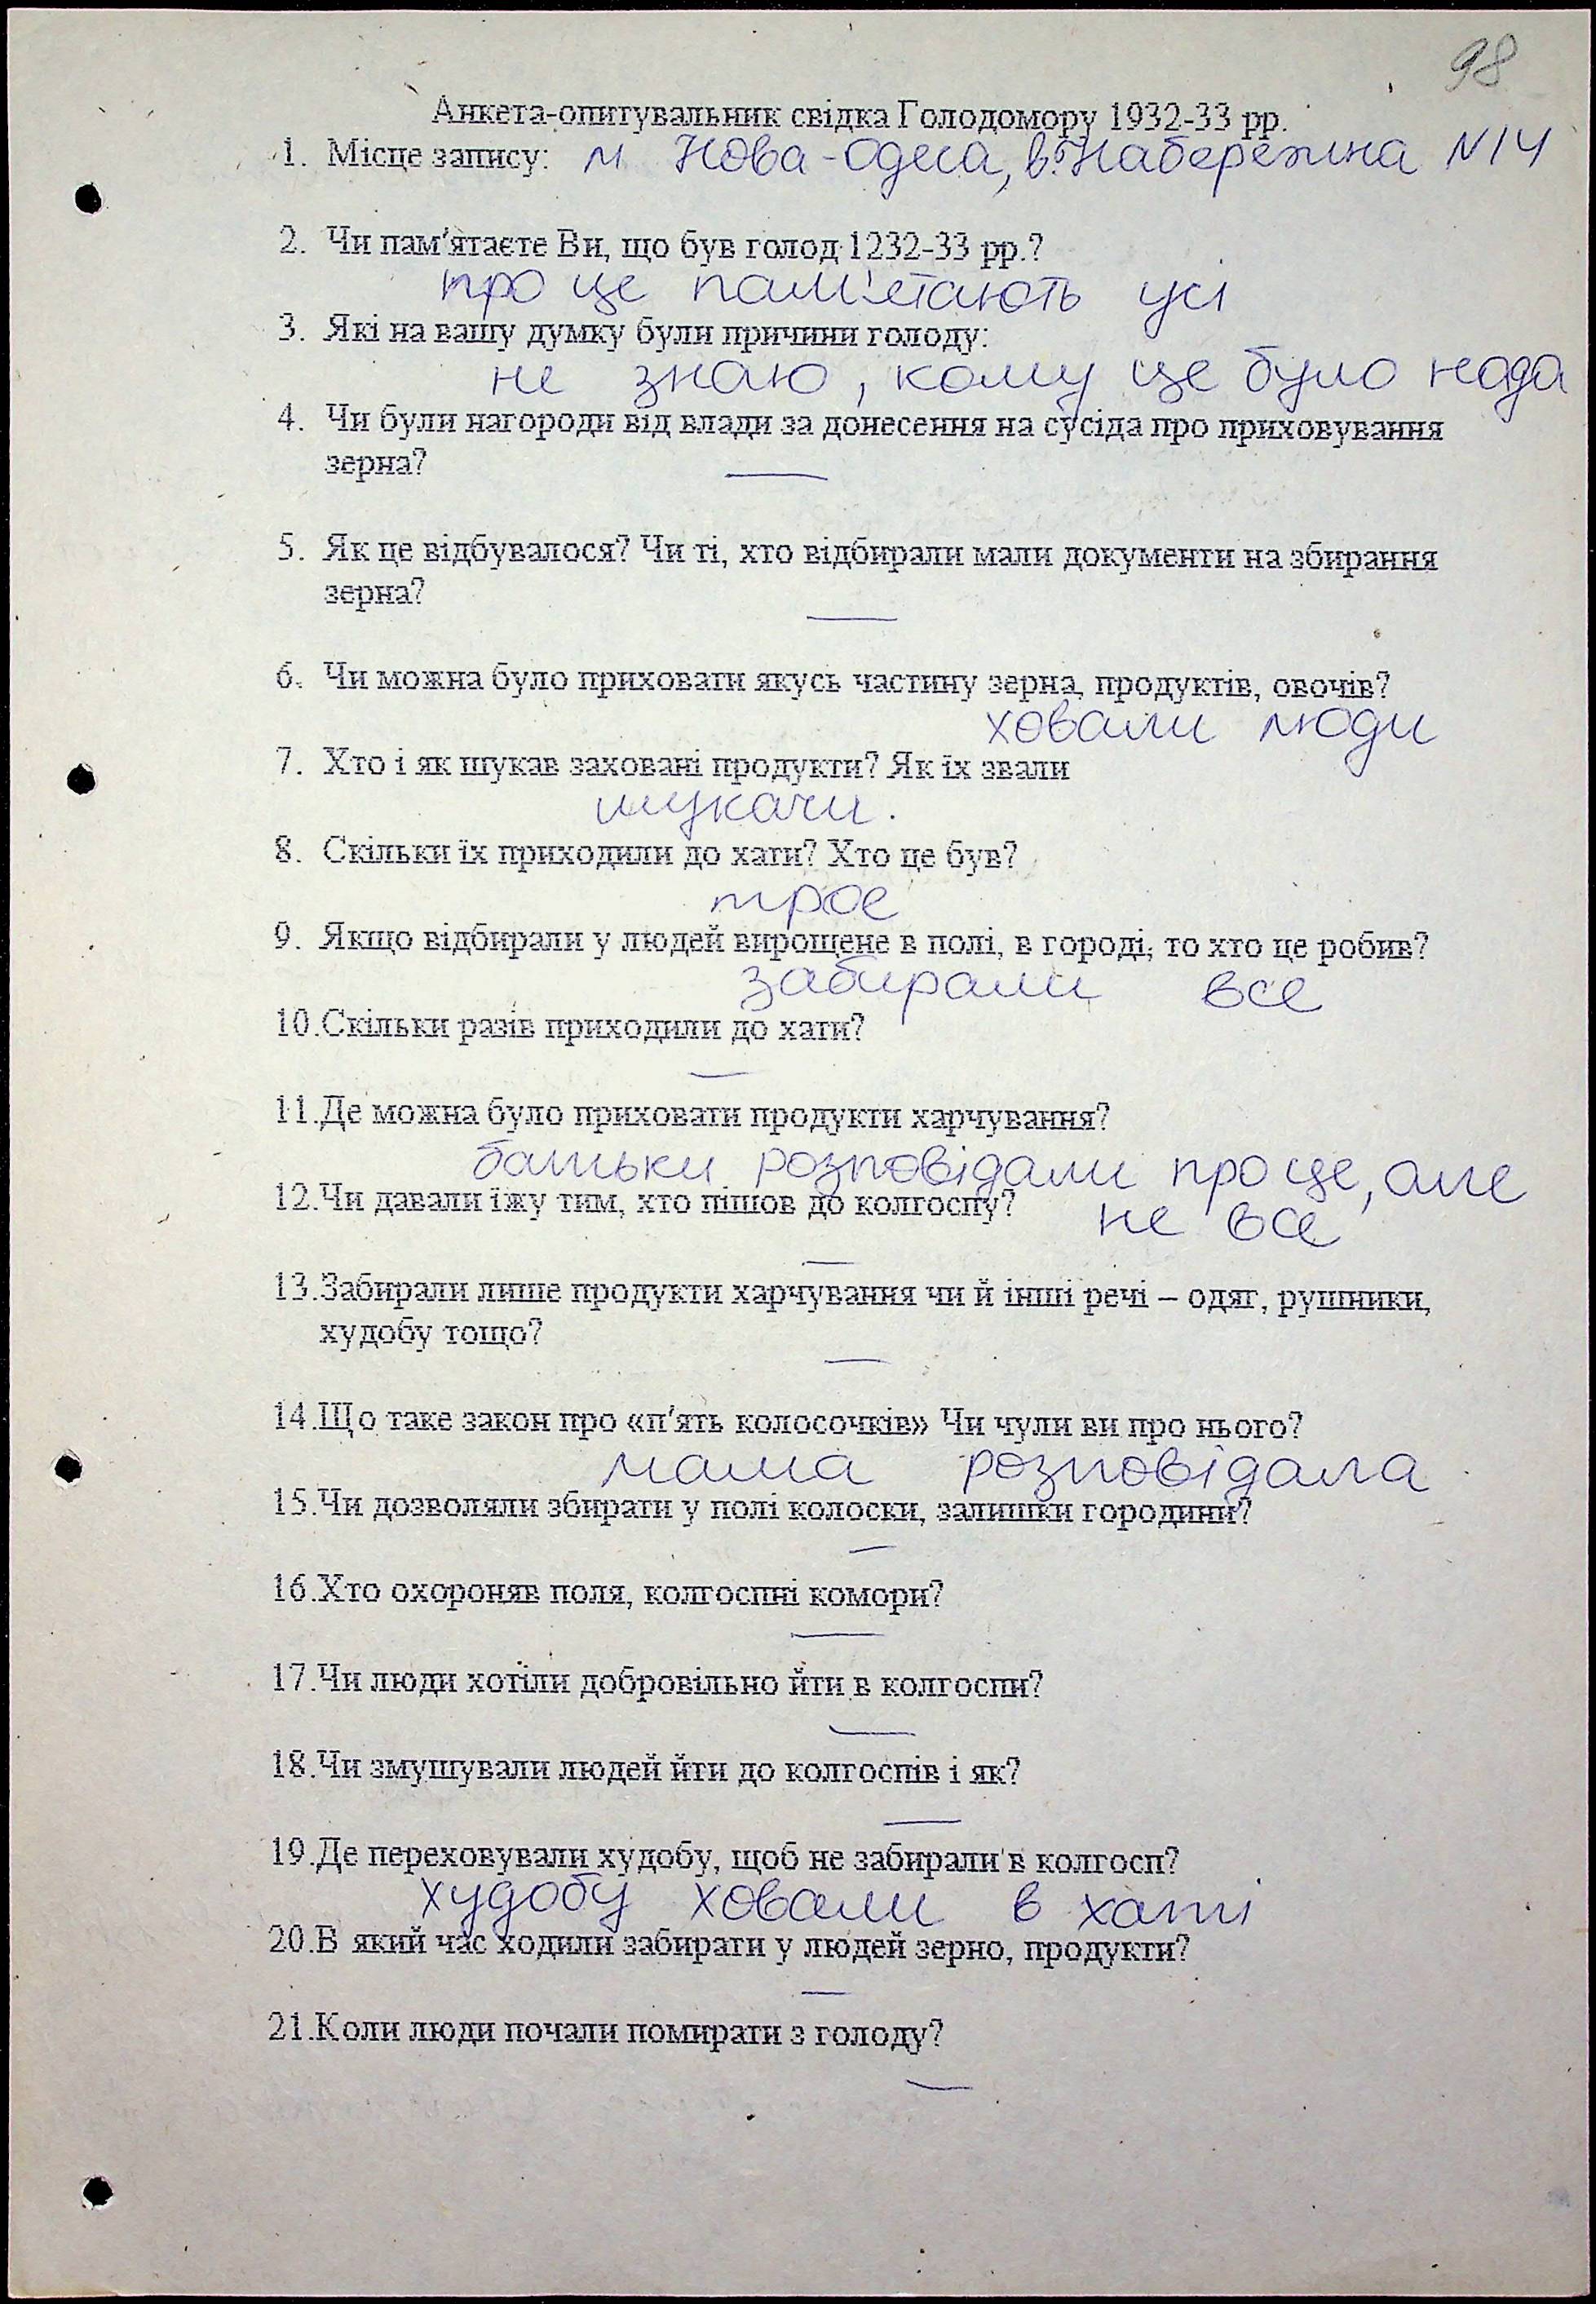 98
Анкета-опитувальник свідка Голодомору 1932-33 рр.
1. Місце запису: м Нова-Одеса, в. Набережна N14
2. Чи пам'ятаєте Ви, що був голод 1232-33 рр.?
про це пам'етають усі
3. Які на вашу думку були причини голоду:
не знаю, кому це було нада
4. Чи були нагороди від влади за донесення на сусіда про приховування
зерна? —
5. Як це відбувалося? Чи ті, хто відбирали мали документи на збирання
зерна?
—
6. Чи можна було приховати якусь частину зерна, продуктів, овочів?
ховали люди
7. Хто і як шукав заховані продукти? Як їх звали
шукачи.
8. Скільки їх приходили до хати? Хто це був?
троє
9. Якщо відбирали у людей вирощене в полі, в городі, то хто це робив?
забирали все
10.Скільки разів приходили до хати?
—
11.Де можна було приховати продукти харчування?
батьки розповідали про це, але
12.Чи давали їжу тим, хто пішов до колгоспу? не все
—
13.Забирали лише продукти харчування чи й інші речі – одяг, рушники,
худобу тощо?
—
14.Що таке закон про «п'ять колосочків» Чи чули ви про нього?
мама розповідала
15.Чи дозволяли збирати у полі колоски, залишки городини?
—
16.Хто охороняв поля, колгоспні комори?
—
17.Чи люди хотіли добровільно йти в колгоспи?
—
18.Чи змушували людей йти до колгоспів і як?
—
19.Де переховували худобу, щоб не забирали в колгосп?
худобу ховали в хаті
20.В який час ходили забирати у людей зерно, продукти?
—
21.Коли люди почали помирати з голоду?
—